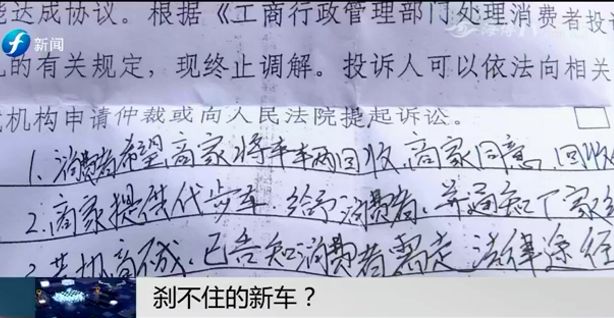 能达成协议。根据《工商行政管理部门处理消费者投诉
新闻
的有关规定，现终止调解。投诉人可以依法向相关
机构申请仲裁或向人民法院提起诉讼。
1.消费者希望商家将车辆回收，商家同意回收
2.商家提供代步车，给予消费者，并通知厂家
已告知消费者需走法律途径
刹不住的新车？